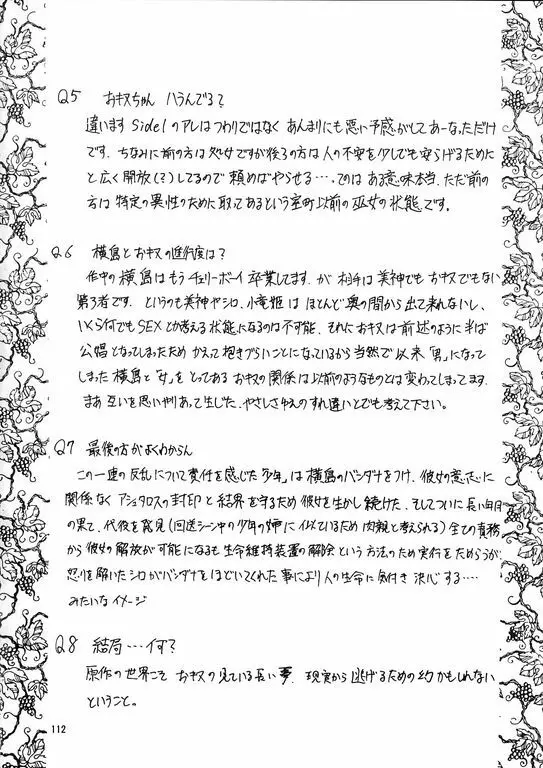 Q5 おキヌちゃん ハラんでる?
違います Side1のアレはつわりではなく あんまりにも悪い予感がしてあーなっただけ
です. ちなみに前の方は処女ですが後ろの方は人の不安を少しでも安らげるために
と広く開放(?)してるので 頼めばやらせる…. てのはある意味本当. ただ前の
方は特定の異性のために取ってあるという室町以前の巫女の状態です。
Q6 横島とおキヌの進行度は?
作中の横島はもうチェリーボーイ卒業してます. が 相手は美神でもおキヌでもない
第3者です. というのも美神やシロ、小竜姫はほとんど奥の間から出て来れないし、
いくら何でもSEXとか考える状態になるのは不可能. それにおキヌは前述のように半ば
公娼となってしまったため かえって抱きづらいことになっているから当然で以来「男」になって
しまった横島と「女」をとってある おキヌの関係は以前のようなものとは変わってしまってます.
まあ互いを思いやりあって生じた、やさしさゆえのすれ違いとでも考えて下さい。
Q7 最後の方がよくわからん
この一連の反乱について責任を感じた「少年」は横島のバンダナをつけ、彼女の意志に
関係なく アシュタロスの封印と結界を守るため彼女を生かし続けた、そしてついに長い年月
の果て、代役を発見(回送シーン中の少年の姉に似ているため肉親と考えられる)全ての責務
から彼女の解放が可能になるも生命維持装置の解除という方法のため実行をためらうが、
怒りを解いたシロがバンダナをほどいてくれた事により人の生命に気付き決心する….
みたいなイメージ
Q8 結局…何?
原作の世界こそ おキヌの見ている長い夢. 現実から逃げるための幻かもしれない
ということ。
112